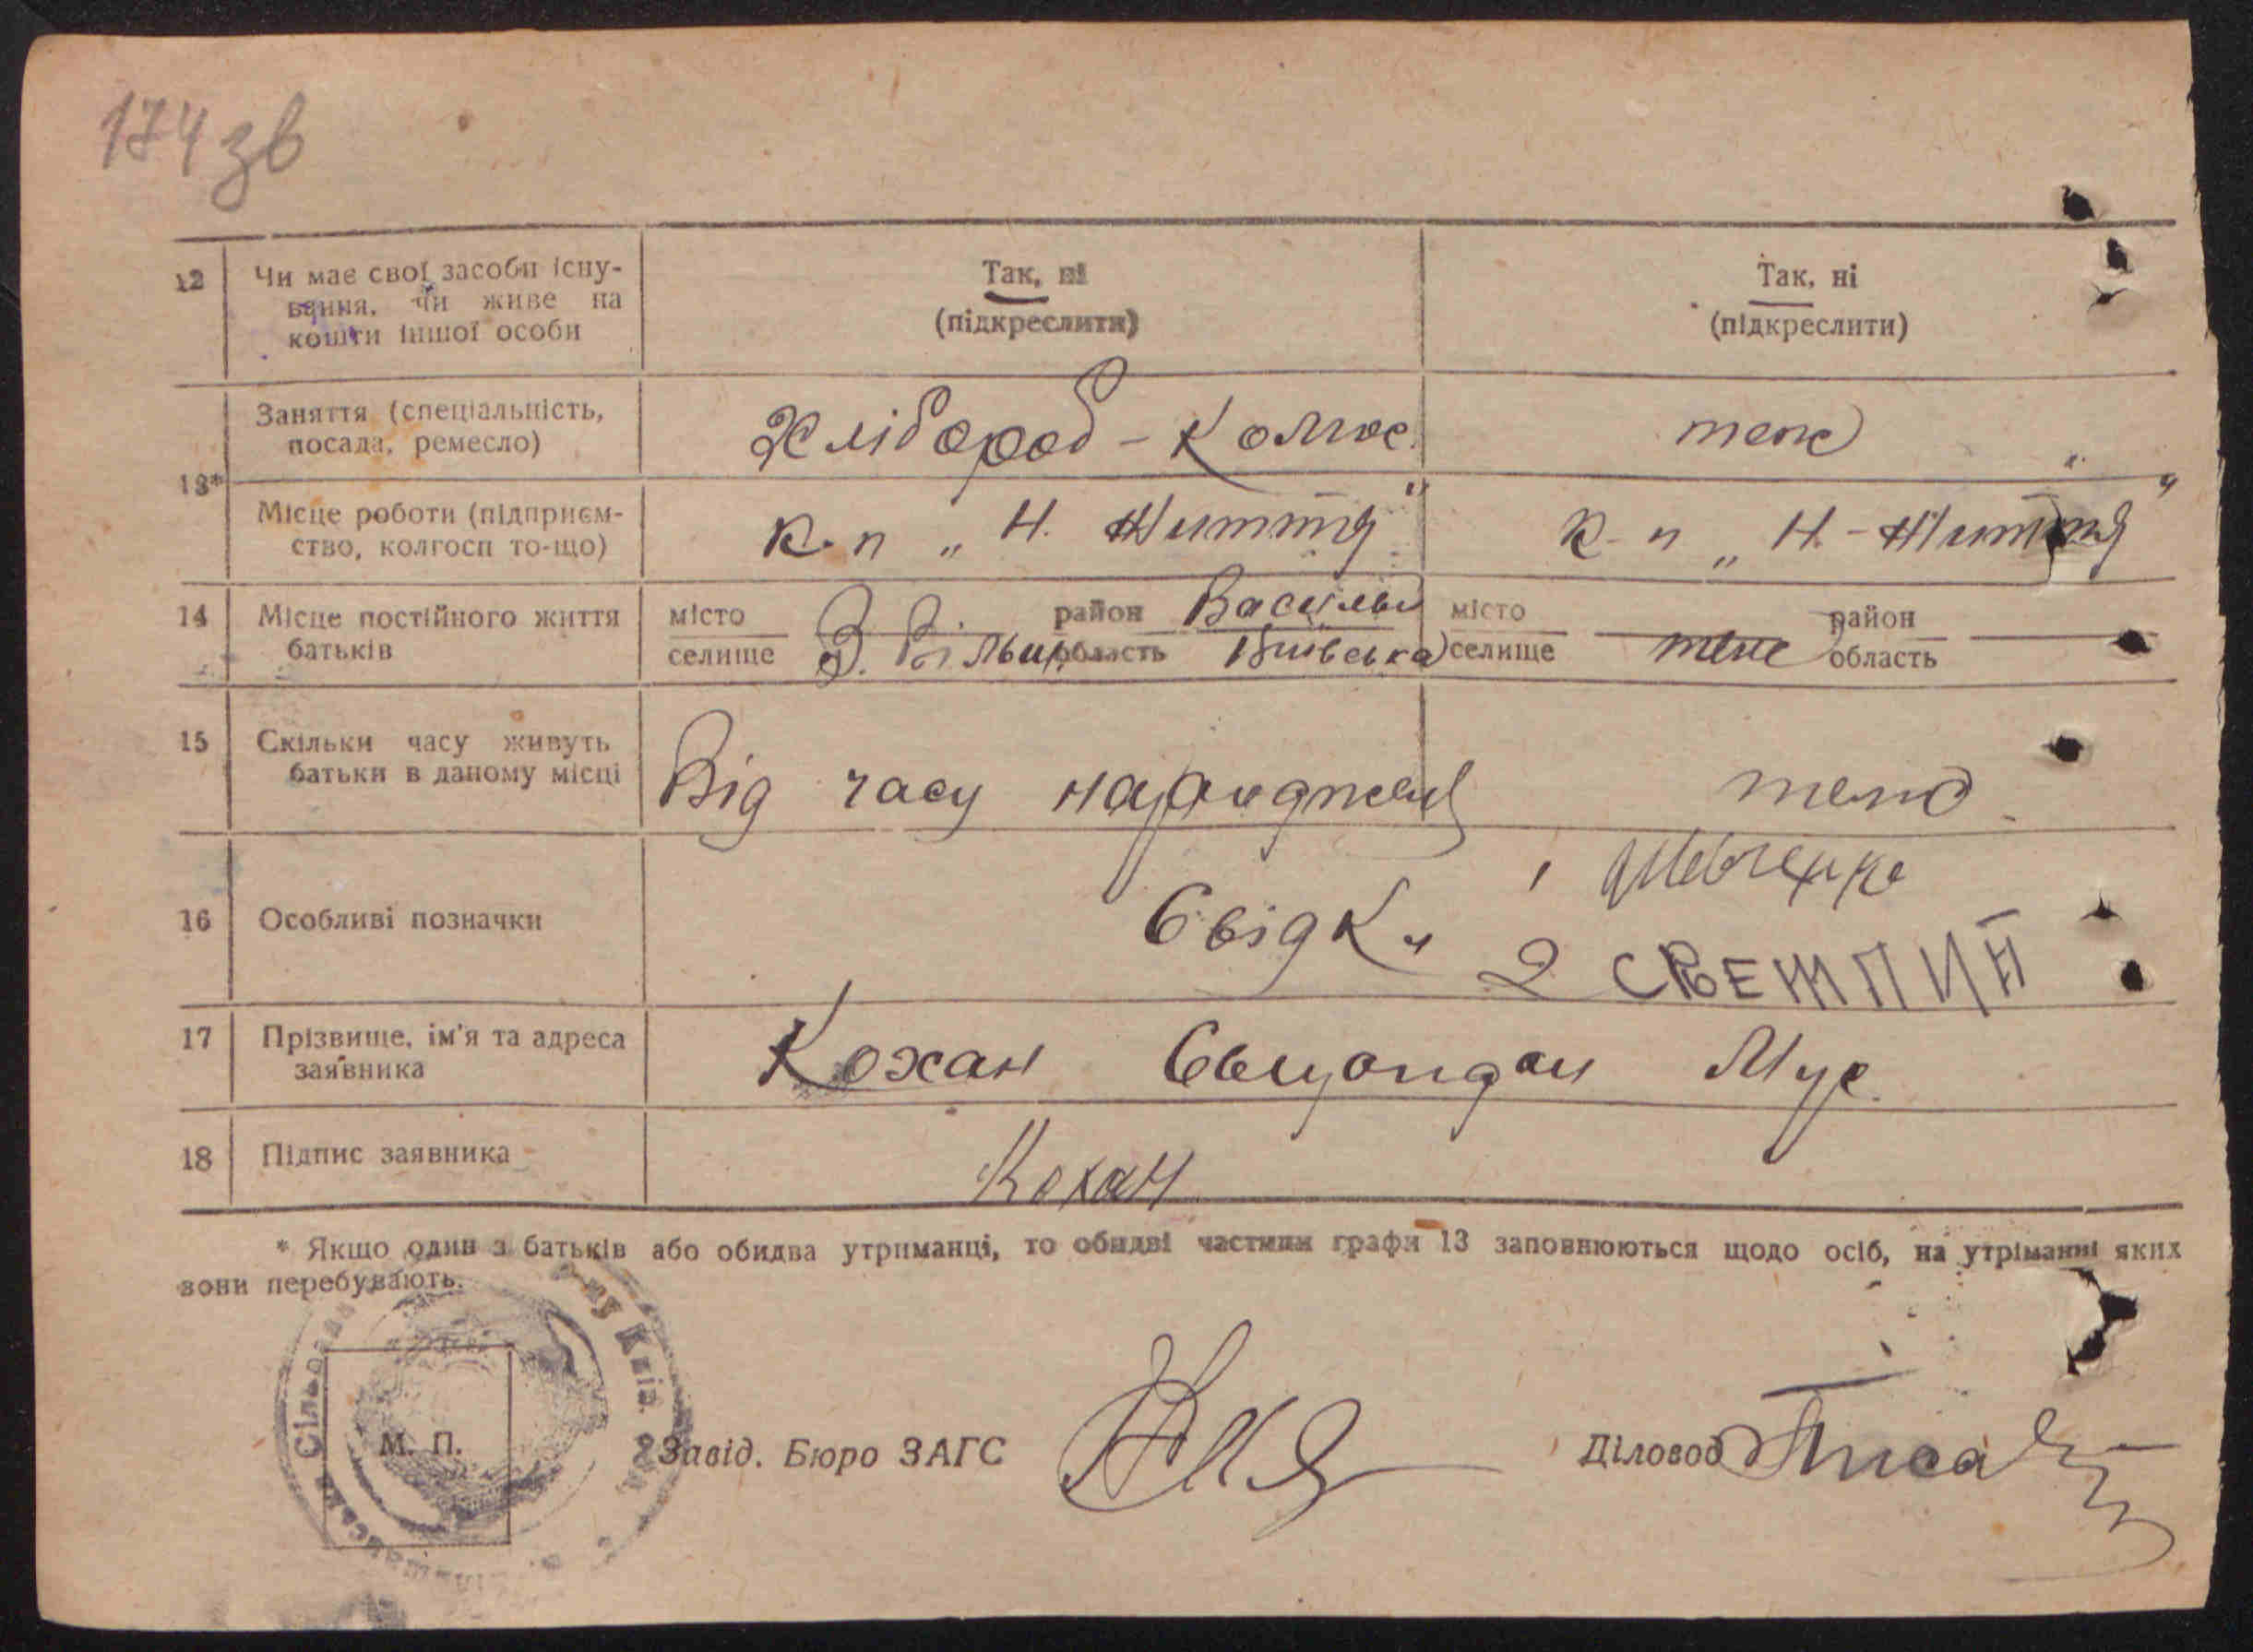 174 зв
12 Чи має свої засоби існу-
вання, чи живе на
кошти іншої особи
Так, ні
(підкреслити)
Так, ні
(підкреслити)
13*
Заняття (спеціальність,
посада, ремесло)
Хлібороб - Колгос.
теж
Місце роботи (підприєм-
ство, колгосп то-що)
к-п „Н. Життя"
к-п „Н-Життя"
14 Місце постійного життя
батьків
місто
селище
район Васильк
область Київська
місто
селище
теж
район
область
15 Скільки часу живуть
батьки в даному місці
Від часу народжен
теж
16 Особливі позначки
Свідки
1 Шевченко
2
17 Прізвище, ім'я та адреса
заявника
Кохан Мус.
18 Підпис заявника
Кохан
* Якщо один з батьків або обидва утриманці, то обидві частини графи 13 заповнюються щодо осіб, на утріманні яких
вони перебувають.
М. П.
Завід. Бюро ЗАГС
Діловод